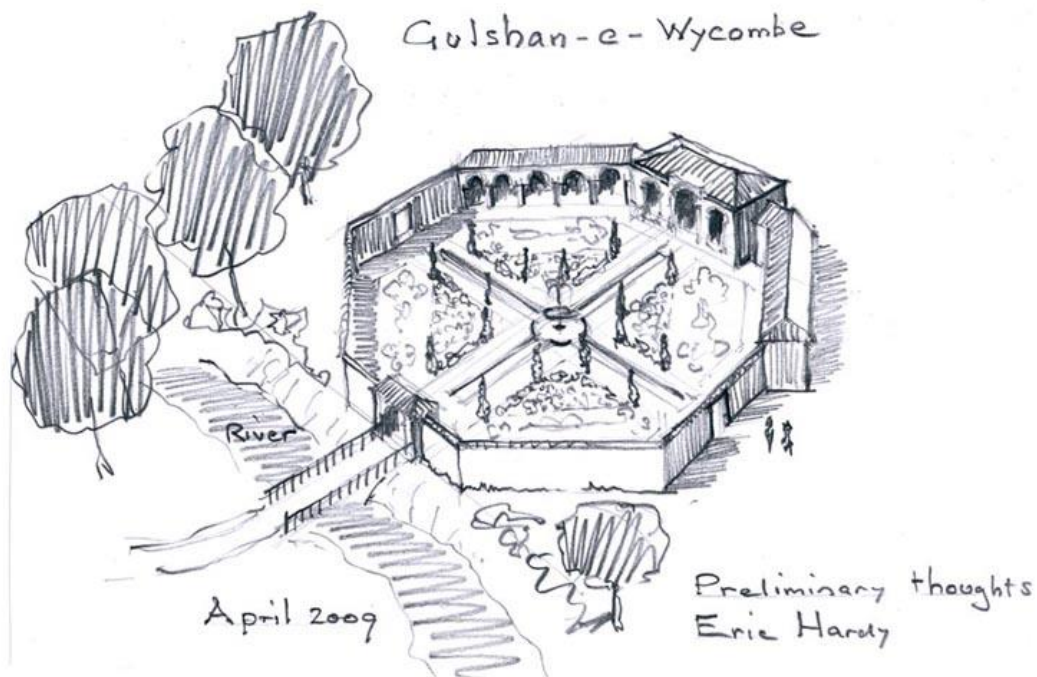 Gulshan-e-Wycombe
River
April 2009
Preliminary thoughts
Eric Hardy